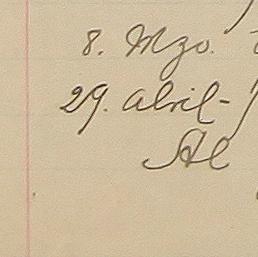 8. Mzo.
29. abril-
Al